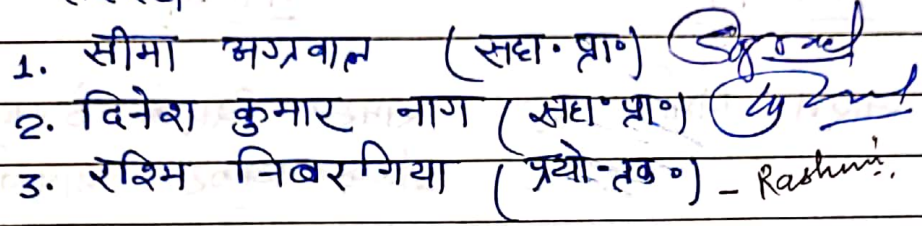 1. सीमा अग्रवाल (सहा॰ प्रा॰)
2. दिनेश कुमार नाग (सहा॰ प्रा॰)
3. रश्मि निबरगिया (प्रयो॰तक॰) - Rashmi.